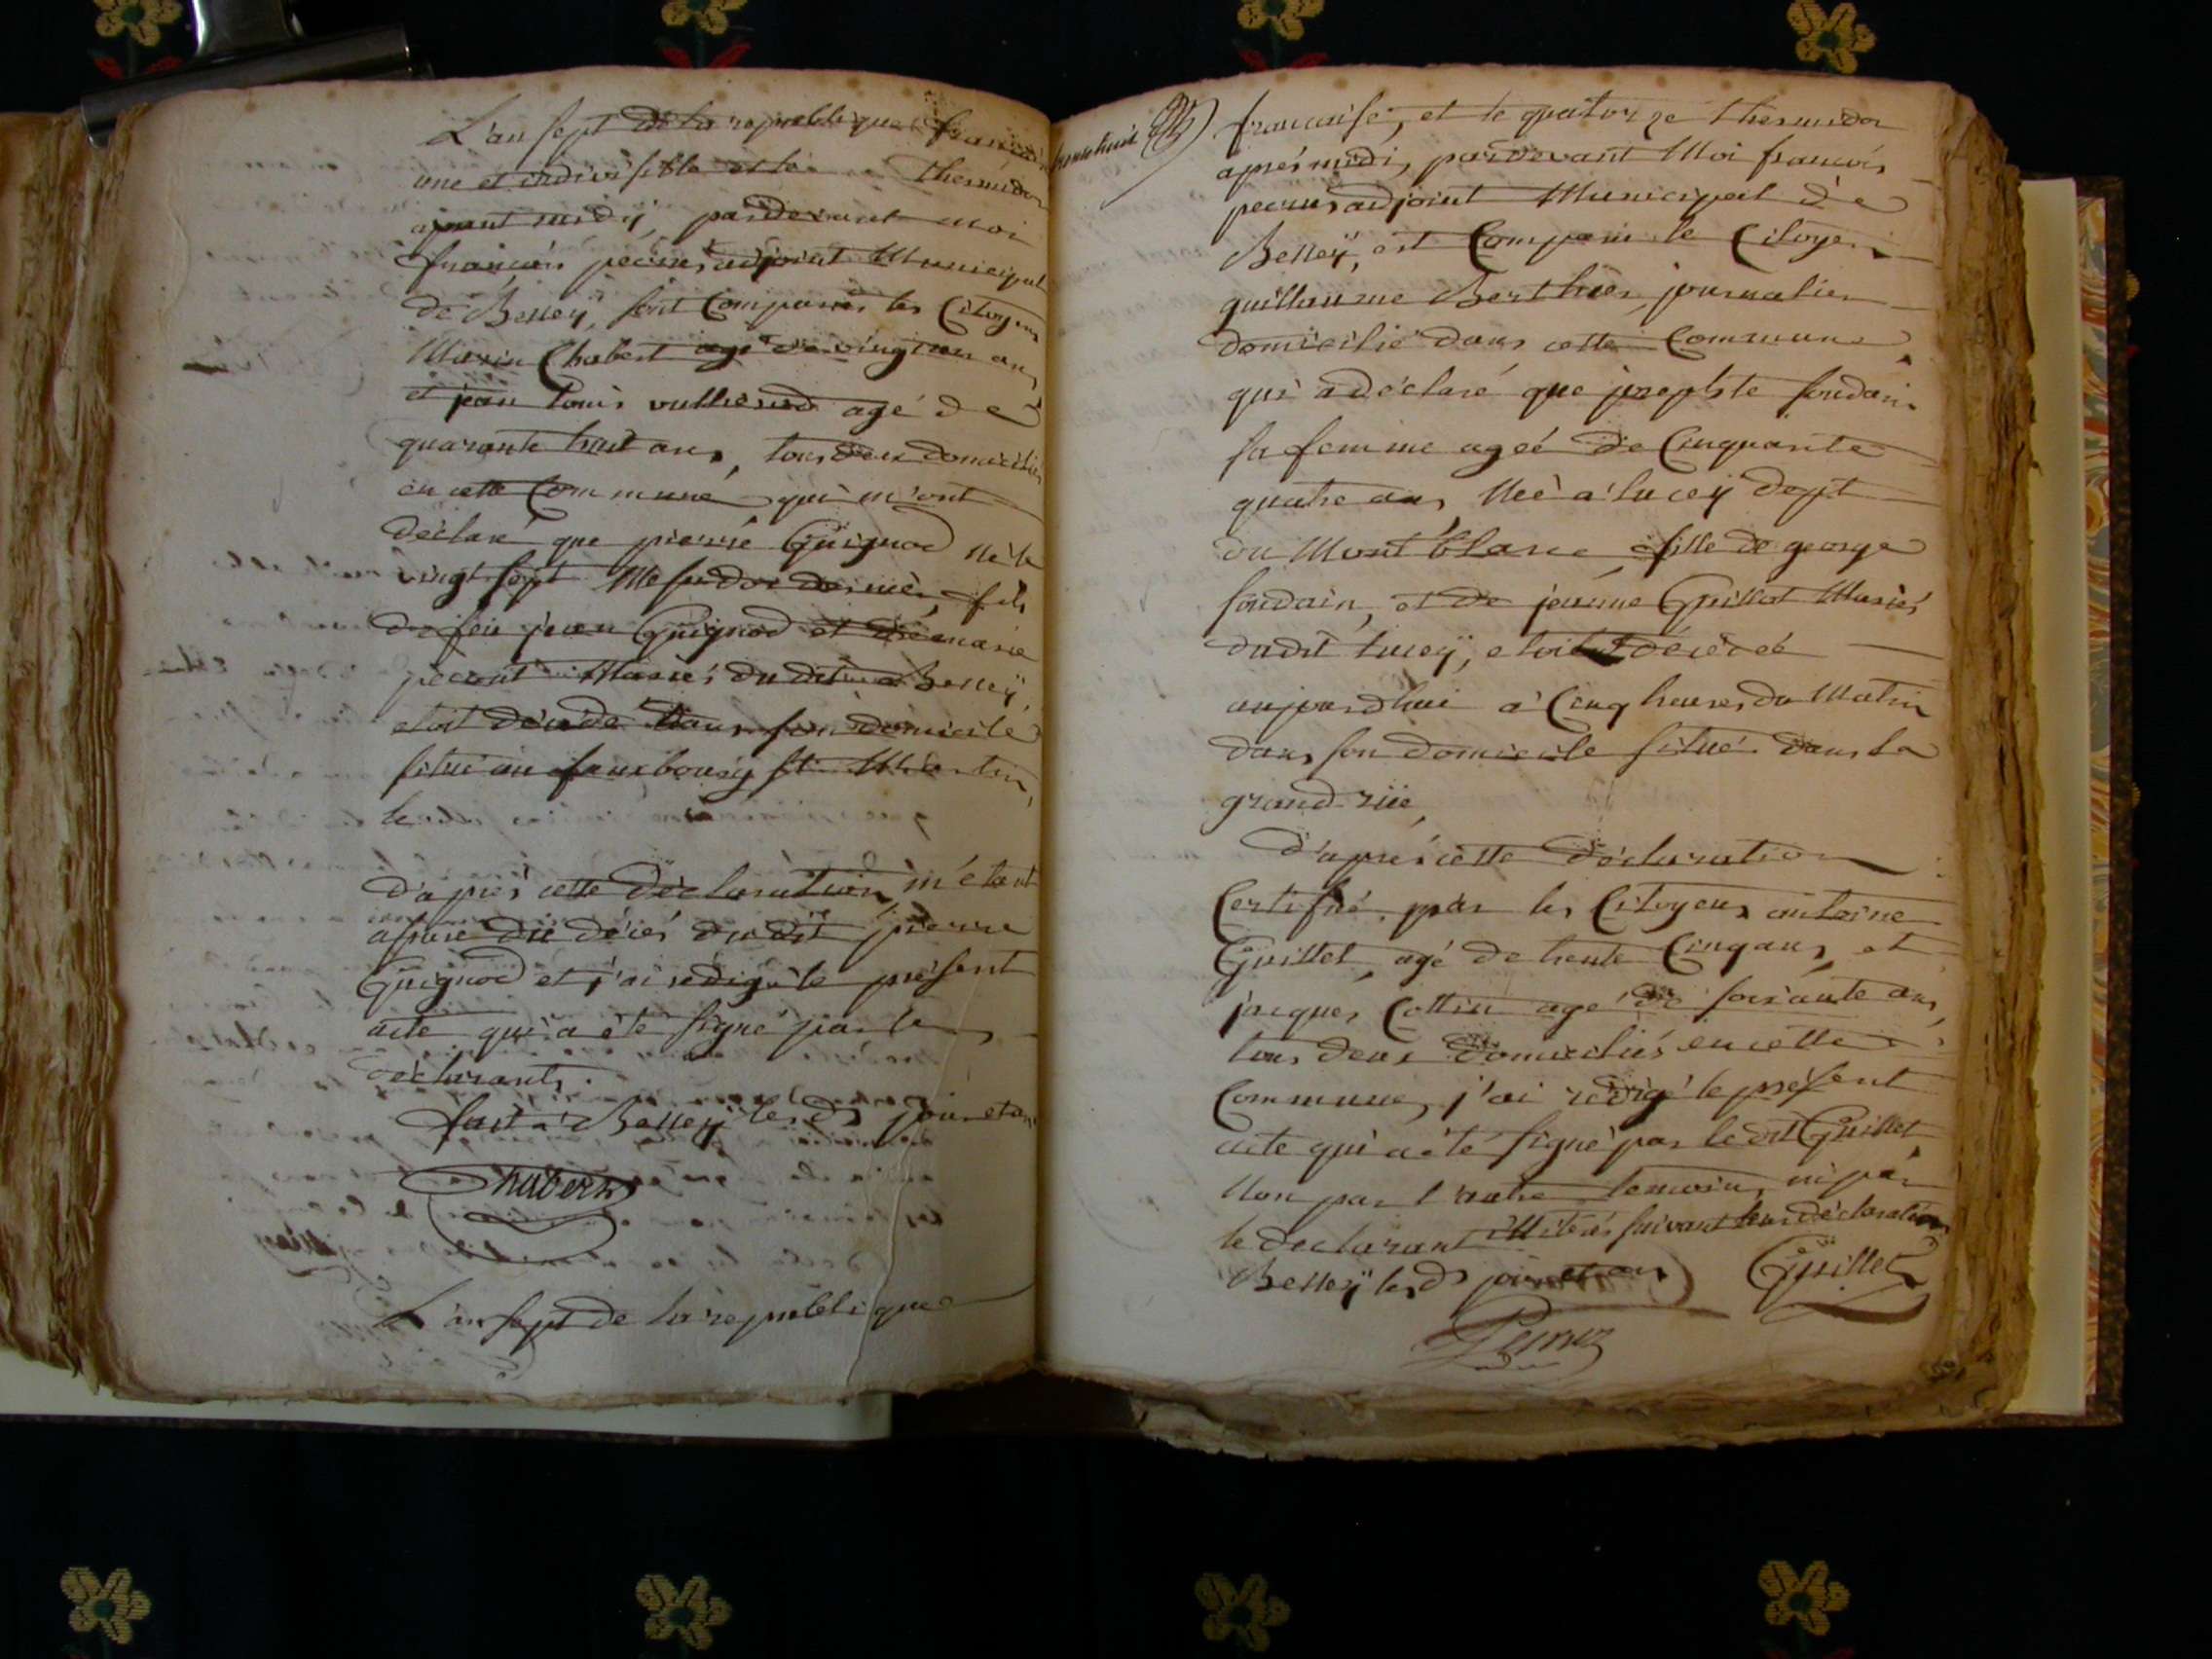 L'an sept de la republique francaise
une et indivisible et le thermidor
avant midy, pardevant moi
francois pecors adjoint Municipal
de Belley, sont Comparus les Citoyens
Marin Chabert agé de vingt ans
et jean louis vullierod agé de
quarante huit ans, tous deux domiciliés
en cette Commune qui m'ont
déclaré que pierre Guignod né le
vingt sept Messidor dernier, fils
de feu jean Guignod et de marie
pecout Mariés du dit Belley
etoit décédé dans son domicile
situé au fauxbourg St Martin,
le
d'après cette déclaration, m'étant
assuré du décés du dit pierre
Guignod et j'ai redigé le present
acte qui a été signé par les
déclarants.
fait a Belley les ds jour et an
Chabert
L'an sept de la republique
trente huit
francaise, et le quatorze thermidor
après midi, pardevant Moi francois
pecors adjoint Municipal de
Belley, est Comparu le Citoyen
guillaume Berthier, journalier
domicilié dans cette Commune
qui a déclaré que josephte soudain
sa femme ageé de Cinquante
quatre ans, Neé a lucey dept
du Montblanc fille de george
soudain, et de jeanne Guillot Mariés
dudit lucey, etoit décedeé
aujourdhui a Cinq heures du Matin
dans son domicile situé dans la
grand rüe,
d'après cette déclaration
Certifié par les Citoyens antoine
Guillet, agé de trente Cinq ans, et
jacques Cottin agé de soixante ans,
tous deux domiciliés en cette
Commune, j'ai redigé le présent
acte qui a été signé par le dit Guillet
Non par l'autre temoin, ni par
le declarant illiterés suivant leur déclaration
Belley les ds jour et an Guillet